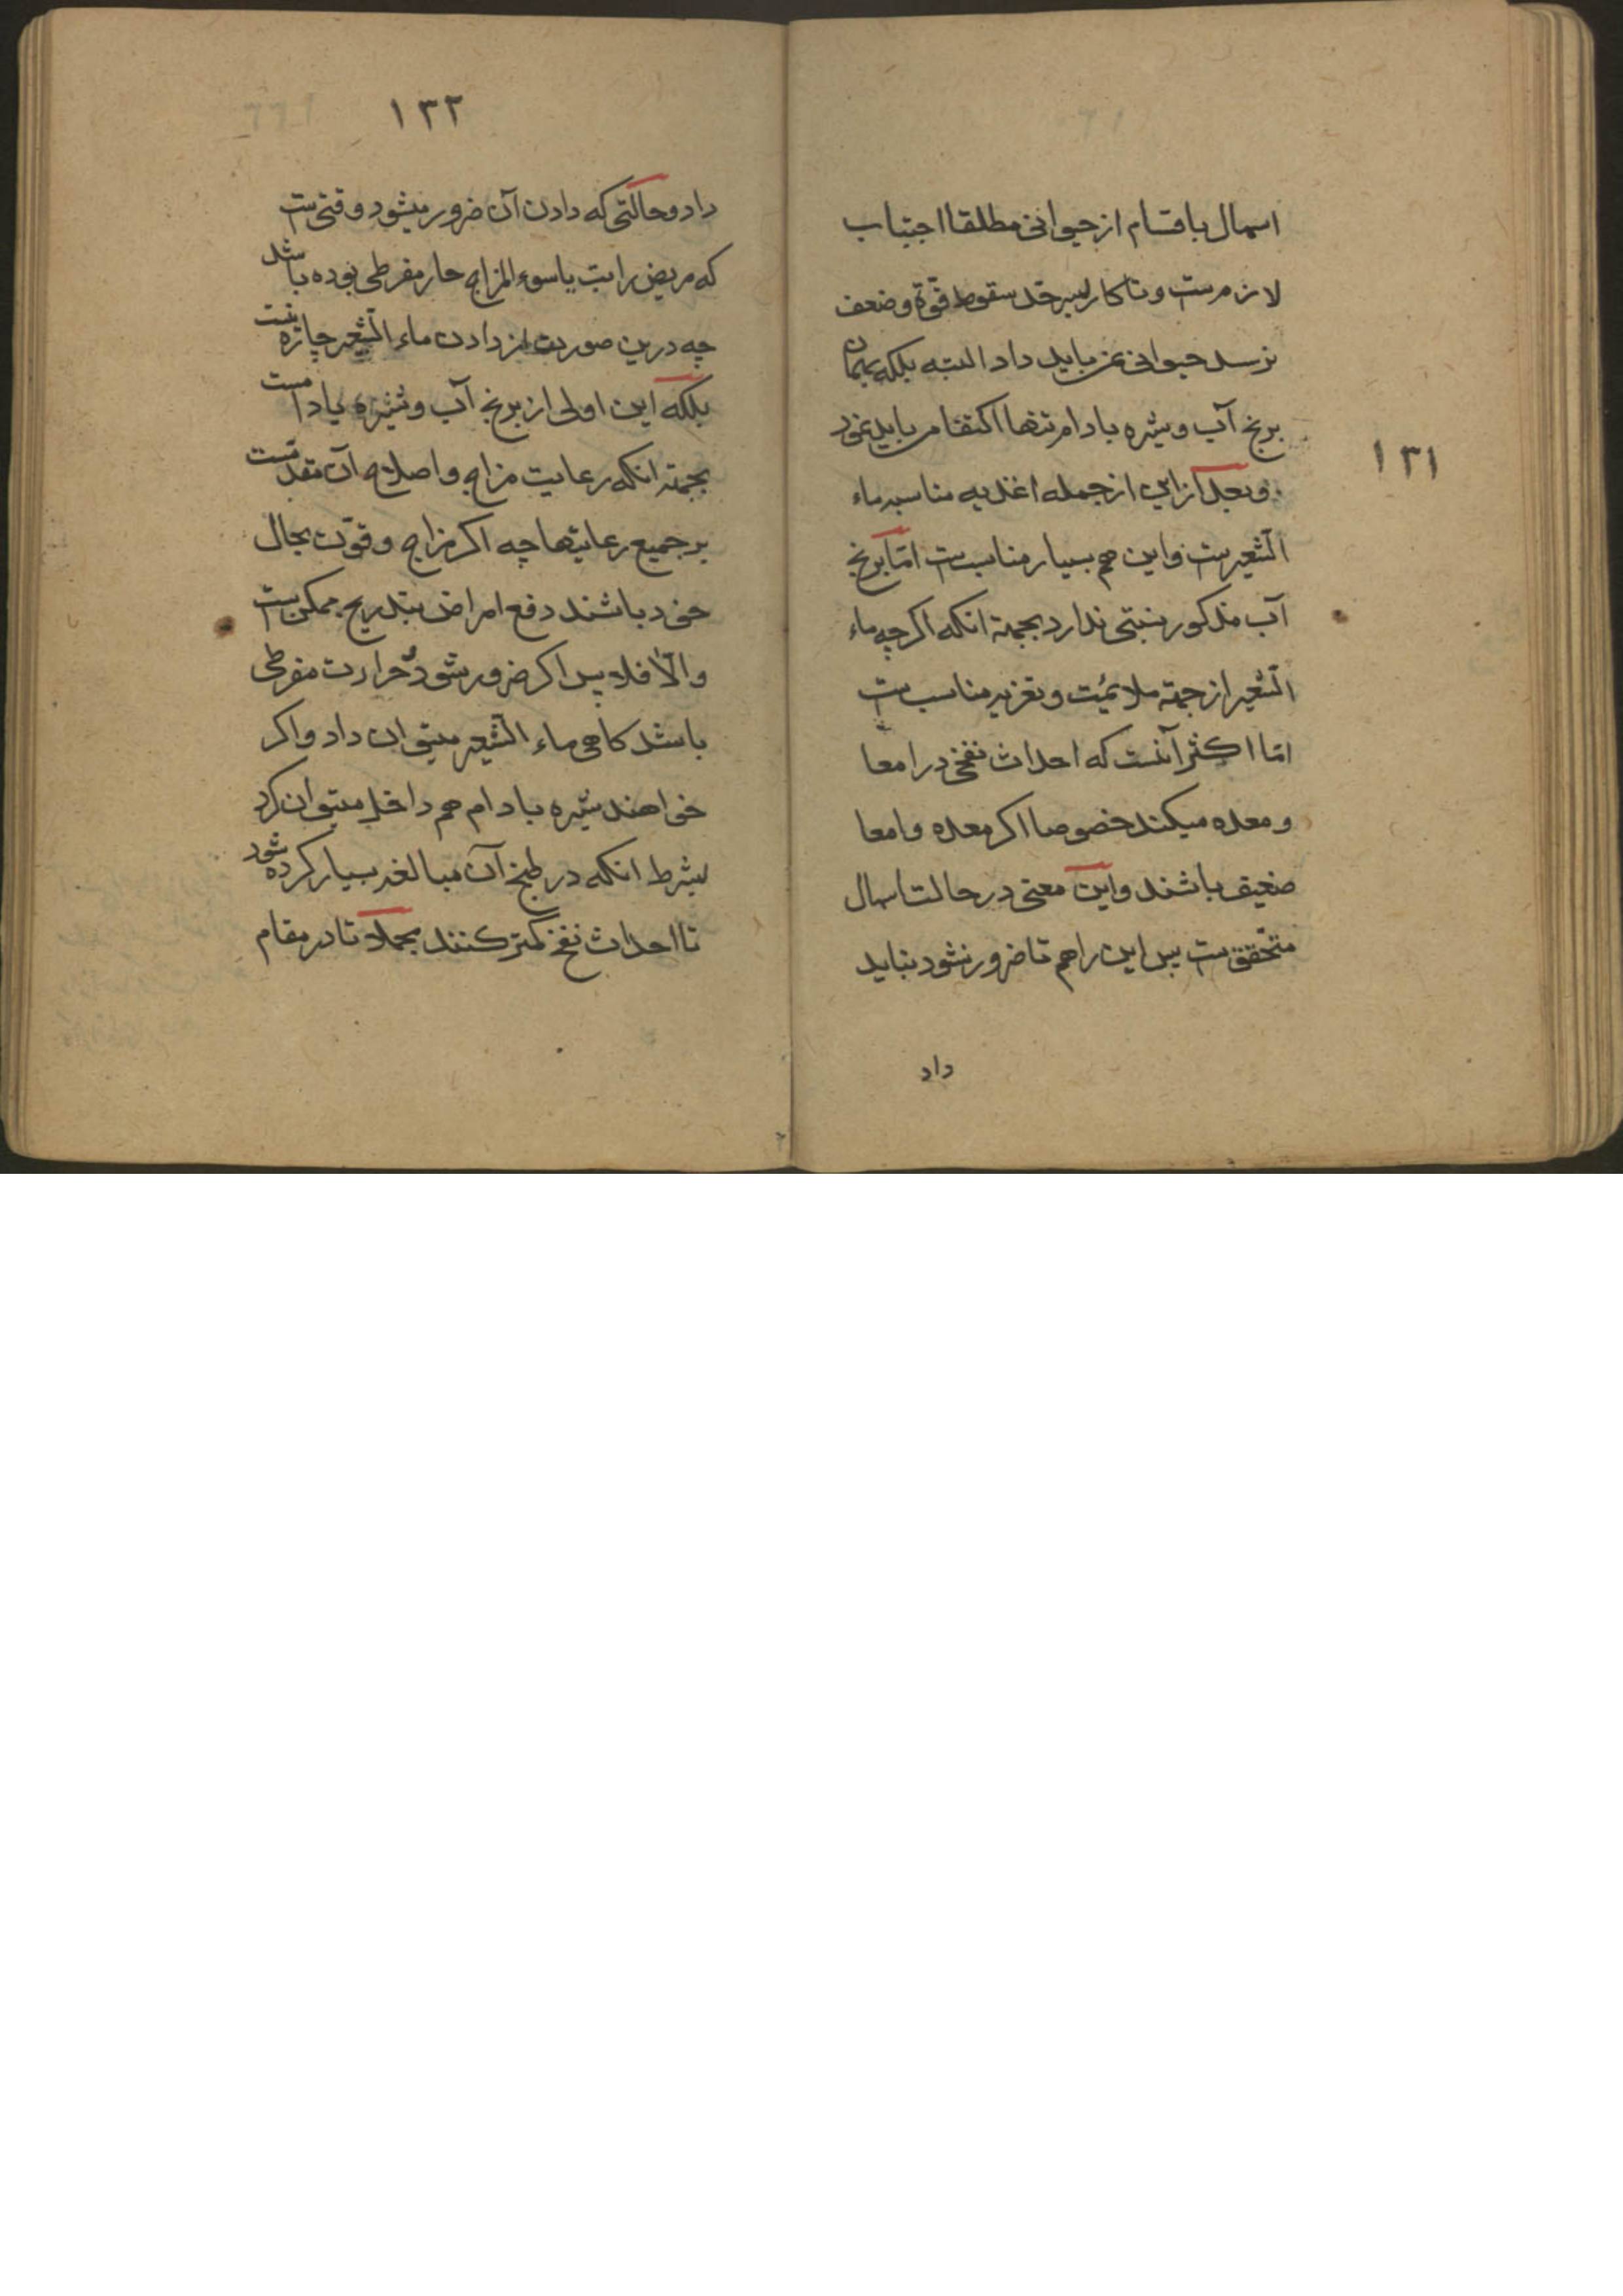 ۱۳۱
اسهال باقسام از حیوانی مطلقا اجتناب
لازمست و تا کار بسرحد سقوط قوّة و ضعف
نرسد حیوانی نمی باید داد البته بلکه بهمان
برنج آب و شیره بادام تنها اکتفا می باید نمود
و بعد از این از جمله اغذیه مناسبه ماء
الشعیرست و این هم بسیار مناسبست امّا برنج
آب مذکور نسبتی ندارد بجهة انکه اکرچه ماء
الشعیر از جهة ملائمت و تغزیه مناسبست
امّا اکثر آنست که احداث نفخی در امعا
و معده میکند خصوصا اکر معده و امعا
ضعیف باشند و این معنی در حالت اسهال
متحقّقست پس این را هم تا ضرور نشود نباید
داد
۱۳۲
داد و حالتی که دادن آن ضرور میشود وقتی‌ست
که مریض را تب یا سوء المزاج حار مفرطی بوده باشد
چه درین صورت از دادن ماء الشعیر چاره نیست
بلکه این اولی از برنج آب و شیره بادامست
بجهة انکه رعایت مزاج و اصلاح آن مقدمست
بر جمیع رعایتها چه اکر مزاج و قوّت بحال
خود باشند دفع امراض بتدریج ممکن‌ست
و الّا فلا پس اکر ضرور شود و حرارت مفرطی
باشد کاهی ماء الشعیر میتوان داد و اکر
خواهند شیره بادام هم داخل میتوان کرد
بشرط انکه در طبخ آن مبالغه بسیار کرده شود
تا احداث نفخ کمتر کنند بجملا تا در مقام